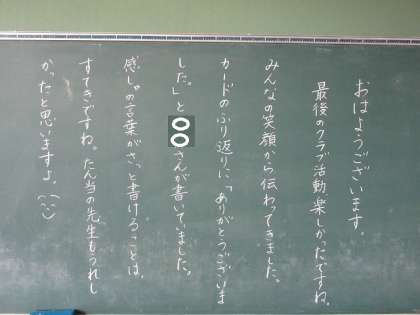 おはようございます。
最後のクラブ活動楽しかったですね。
みんなの笑顔から伝わってきました。
カードのふり返りに、「ありがとうございま
した。」と〇〇さんが書いていました。
感しゃの言葉がさっと書けることは、
すてきですね。たん当の先生もうれし
かったと思いますよ。(^^)